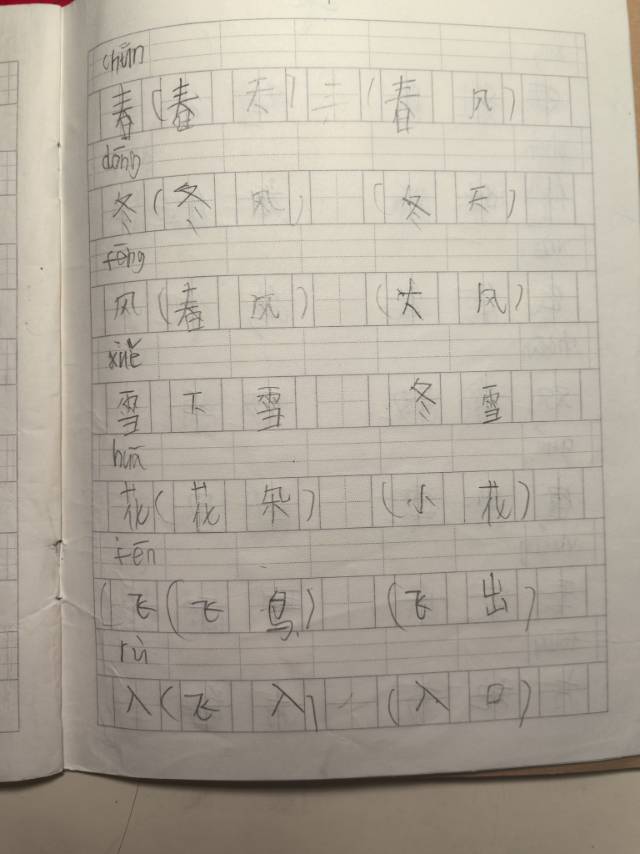 chūn
春(春 天) (春 风)
dōng
冬(冬 风) (冬 天)
fēng
风(春 风) (大 风)
xuě
雪 下 雪 冬 雪
huā
花(花 朵) (小 花)
fēn
(飞(飞 鸟) (飞 出)
rù
入(飞 入) (入 口)